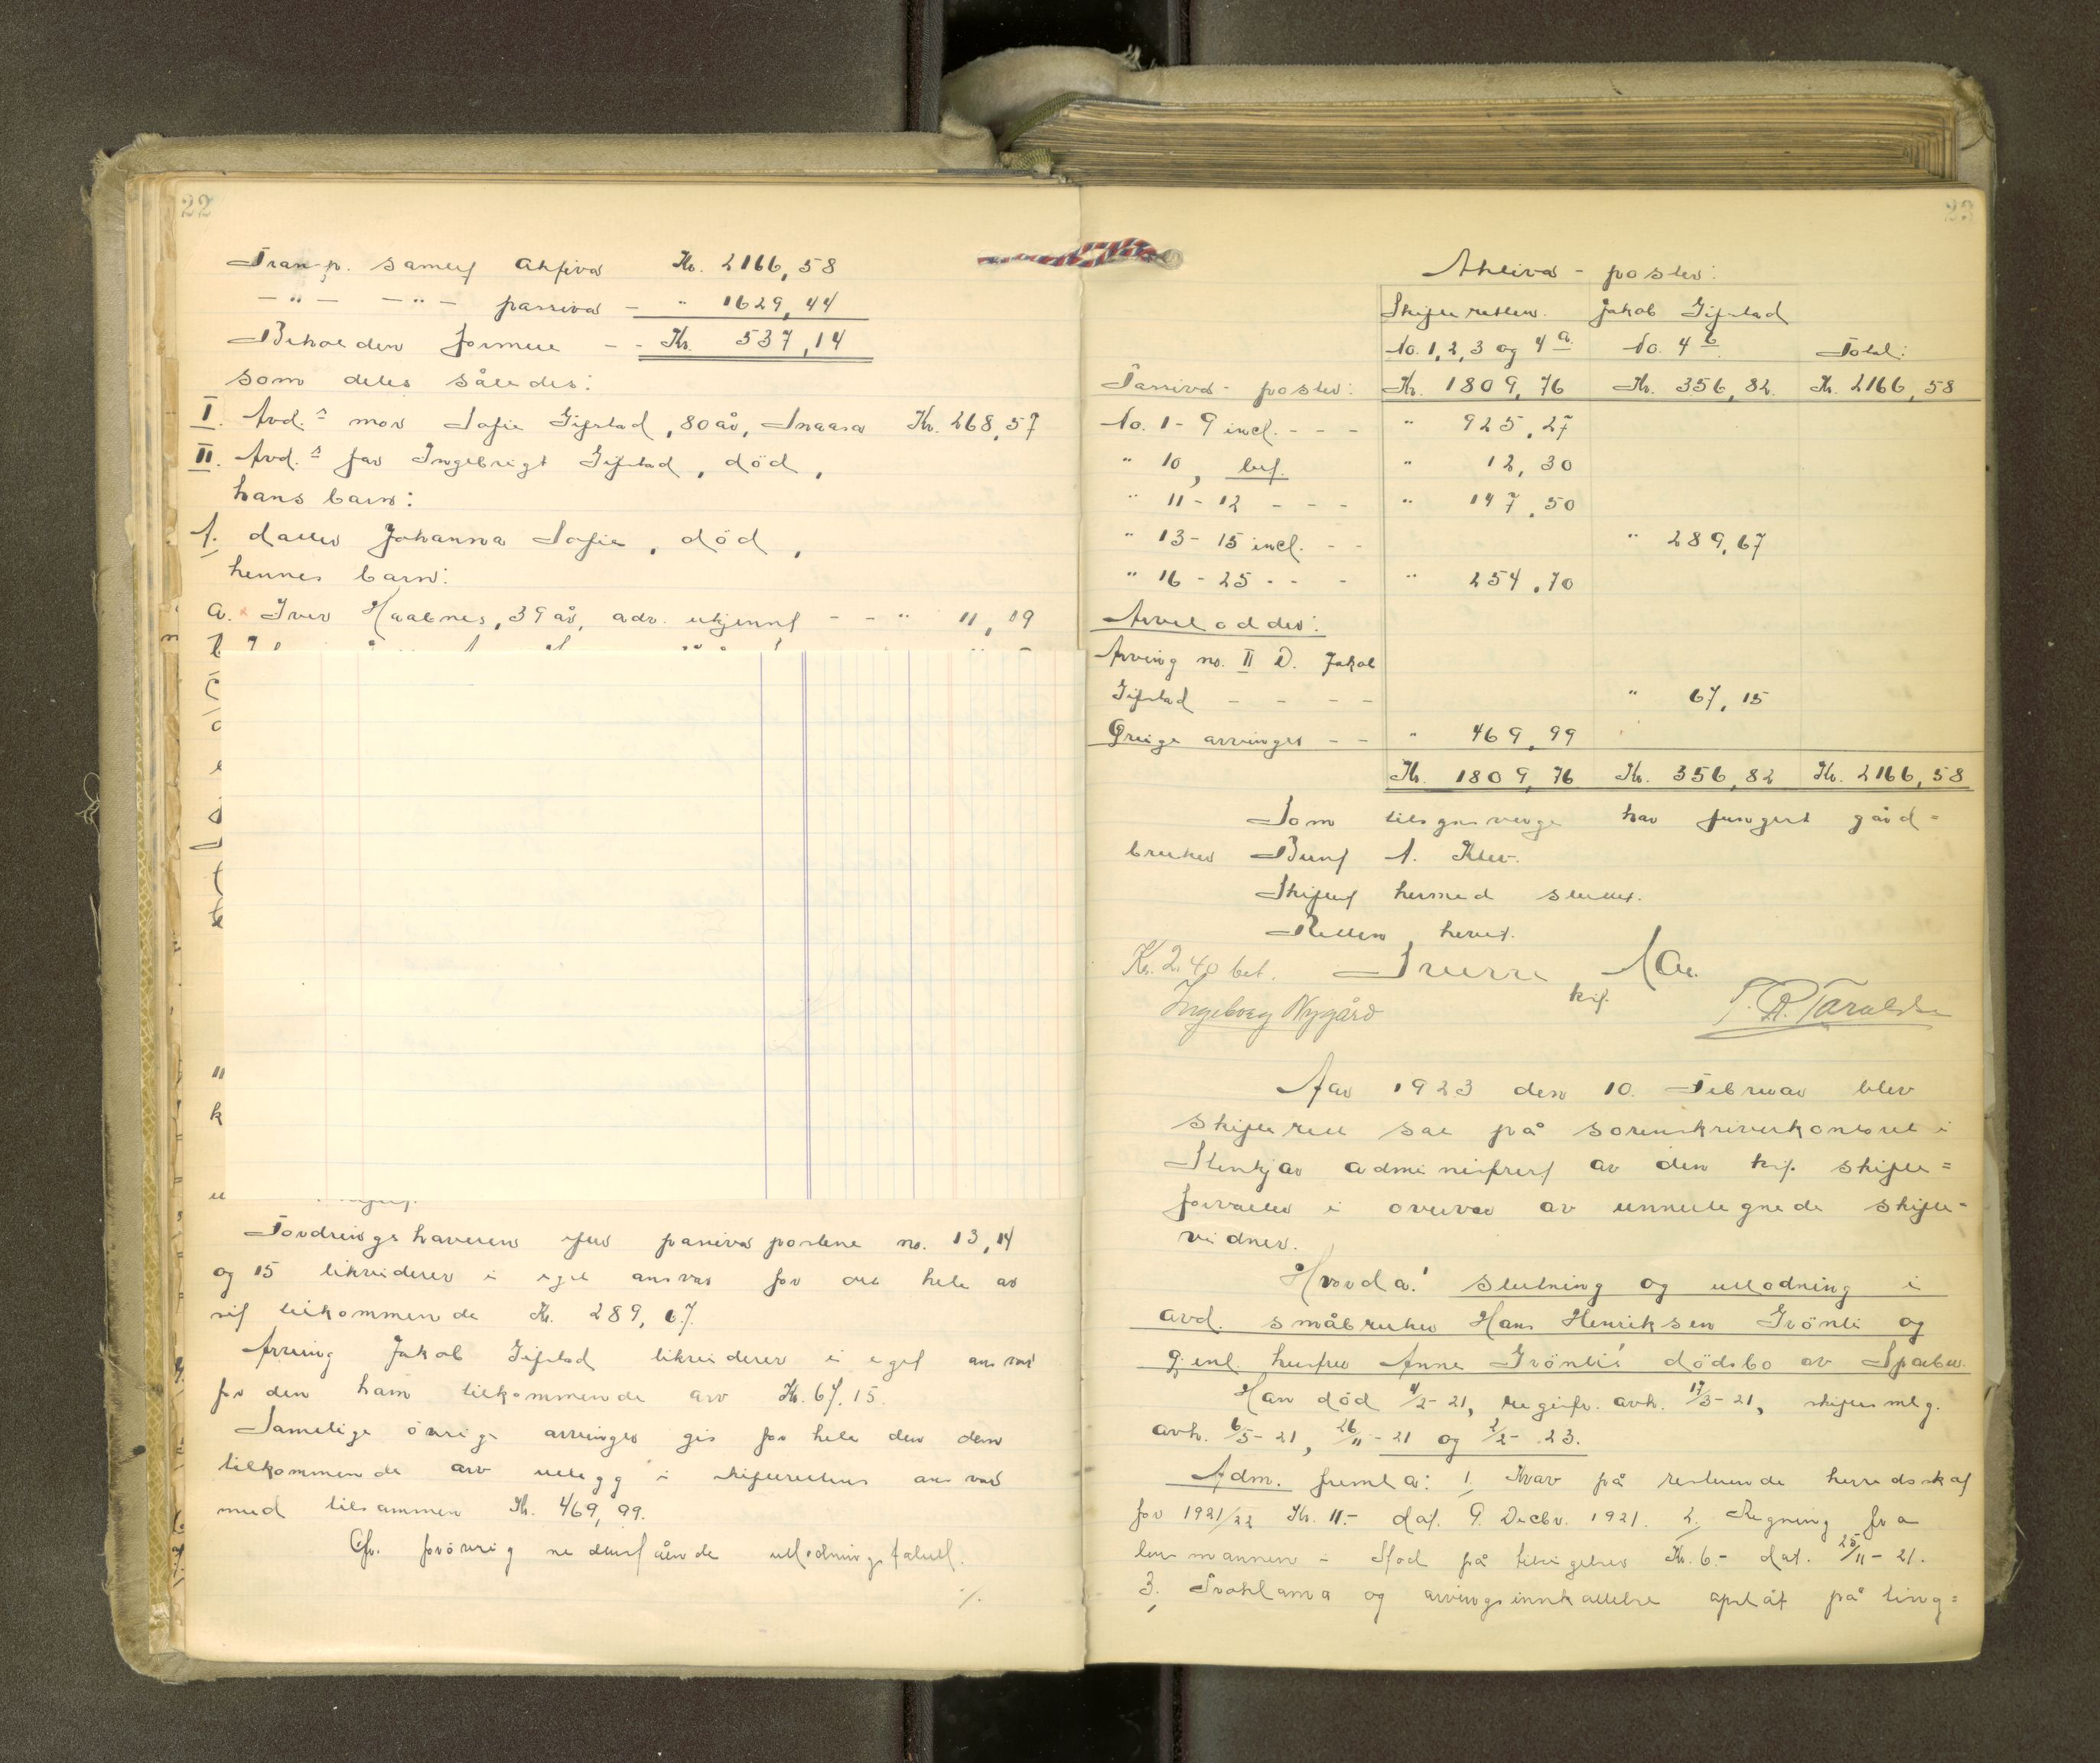 22
Transp. samlet aktiva Kr. 2166,58
— " — — " — passiva — " 1629,44
Beholden formue - - Kr. 537,14
som deles således:
I. Avd.s mor Sofie Gifstad, 80 år, Snaasa Kr. 268,57
II. Avd.s far Ingebrigt Gifstad, död,
hans barn:
A. datter Johanna Sofie, död,
hennes barn:
a. Iver Haabnes, 39 år, adr. ukjennt - - " 11,19
Fordringshaveren efter passivapostene no. 13, 14
og 15 likviderer i eget ansvar for det hele av
sit tilkommende Kr. 289,67.
Arving Jakob Gifstad likviderer i eget ansvar
for den ham tilkommende arv Kr. 67,15.
Samtlige övrige arvinger gis for hele den dem
tilkommende arv utlegg i skifterettens ansvar
med tilsammen Kr. 469,99.
Cfr. forövrig nedenstående utlodningstabell.
./.
23
Aktiva - poster:
Skifteretten. Jakob Gifstad
No. 1, 2, 3 og 4 a. No. 4 b. Total:
Passiva - poster: Kr. 1809,76 Kr. 356,82. Kr. 2166,58
No. 1 - 9 incl. - - - " 925,27
" 10, bet. " 12,30
" 11 - 12 - - - " 147,50
" 13 - 15 incl. - - " 289,67
" 16 - 25 - - - " 254,70
Arvelodder:
Arving no. II D. Jakob
Gifstad - - - - " 67,15
Övrige arvinger - - " 469,99
Kr. 1809,76 Kr. 356,82 Kr. 2166,58
Som tilsynsverge har fungert gård=
bruker Bent A. Klev.
Skiftet hermed sluttet.
Retten hevet.
Kr. 2.40 bet. Sverre Aa.
kst.
Ingeborg Nygård T. R. Taraldsen
Aar 1923 den 10. Februar blev
skifterett sat på sorenskriverkontoret i
Stenkjær administrert av den kst. skifte=
forvalter i overvær av undertegnede skifte-
vidner.
Hvorda: slutning og utlodning i
avd. småbruker Hans Henriksen Grönli og
gj.enl. hustru Anne Grönli's dödsbo av Sparbu.
Han död 4/2-21, registr. avh. 17/3-21, skiftesmlg.
avh. 6/5-21, 26/11-21 og 2/2-23.
Adm. fremla: 1. Krav på resterende herredsskat
for 1921/22 Kr. 11.- dat. 9. Decbr. 1921. 2. Regning fra
lensmannen i Stod på tilsigelser Kr. 6.- dat. 25/11-21.
3. Proklama og arvingsinnkallelse oplåt på ting=